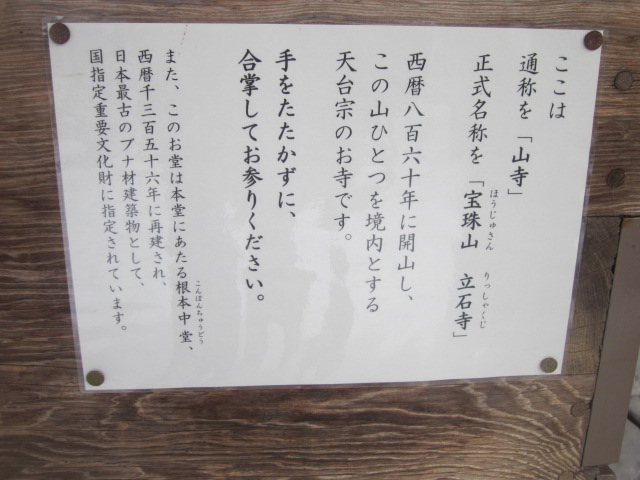 ここは
通称を「山寺」
正式名称を「宝珠山 立石寺」
ほうじゅさん りっしゃくじ
西暦八百六十年に開山し、
この山ひとつを境内とする
天台宗のお寺です。
手をたたかずに、
合掌してお参りください。
また、このお堂は本堂にあたる根本中堂、
こんぽんちゅうどう
西暦千三百五十六年に再建され、
日本最古のブナ材建築物として、
国指定重要文化財に指定されています。